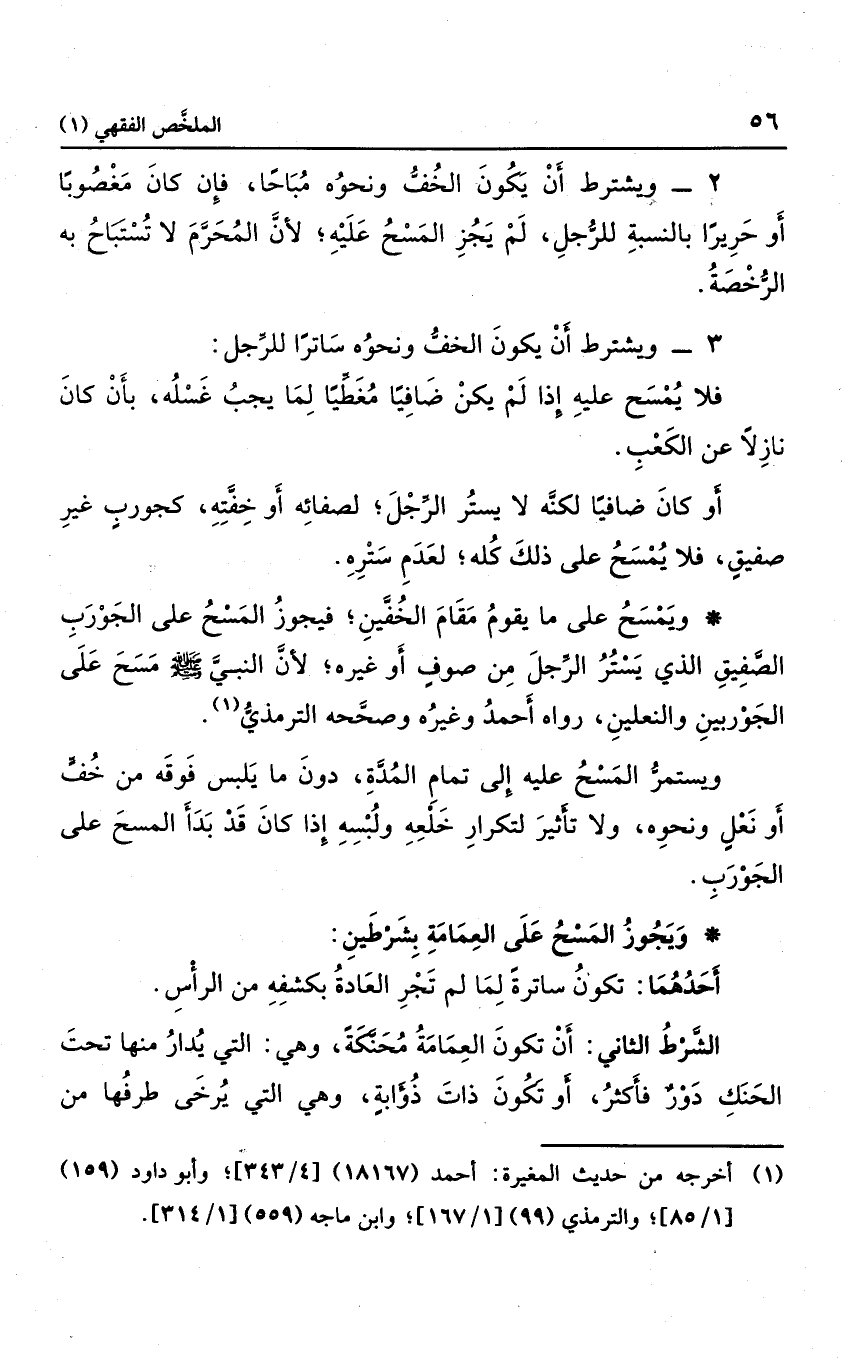 ٥٦
الملخَّص الفقهي (١)
٢ ــ ويشترط أَنْ يَكُونَ الخُفُّ ونحوُه مُبَاحًا، فإِن كانَ مَغْصُوبًا
أَو حَرِيرًا بالنسبةِ للرُّجلِ، لَمْ يَجُزِ المَسْحُ عَلَيْهِ؛ لأنَّ المُحَرَّمَ لا تُسْتَبَاحُ به
الرُّخْصَةُ.
٣ ــ ويشترط أَنْ يكونَ الخفُّ ونحوُه سَاترًا للرِّجل:
فلا يُمْسَح عليهِ إِذا لَمْ يكنْ ضَافِيًا مُغَطِّيًا لِمَا يجبُ غَسْلُه، بأَنْ كانَ
نازِلاً عن الكَعْبِ.
أَو كانَ ضافيًا لكنَّه لا يستُر الرِّجْلَ؛ لصفائِه أَو خِفَّتِهِ، كجوربٍ غيرِ
صفيقٍ، فلا يُمْسَحُ على ذلكَ كُله؛ لعَدَمِ سَتْرِهِ.
* ويَمْسَحُ على ما يقومُ مَقَامَ الخُفَّينِ؛ فيجوزُ المَسْحُ على الجَوْرَبِ
الصَّفِيقِ الذي يَسْتُرُ الرِّجلَ مِن صوفٍ أَو غيره؛ لأنَّ النبيَّ ﷺ مَسَحَ عَلَى
الجَوْربينِ والنعلينِ، رواه أَحمدُ وغيرُه وصحَّحه الترمذيُّ(١).
ويستمرُّ المَسْحُ عليه إِلى تمامِ المُدَّةِ، دونَ ما يَلبس فَوقَه من خُفٍّ
أَو نَعْلٍ ونحوِه، ولا تأَثيرَ لتكرارِ خَلْعِهِ ولُبْسِهِ إِذا كانَ قَدْ بَدَأَ المسحَ على
الجَوْرَبِ.
* وَيَجُوزُ المَسْحُ عَلَى العِمَامَةِ بِشَرْطَينِ:
أَحَدُهُمَا: تكونُ ساترةً لِمَا لم تَجْرِ العَادةُ بكشفِهِ من الرأْسِ.
الشَّرْطُ الثاني: أَنْ تكونَ العِمَامَةُ مُحَنَّكَةً، وهي: التي يُدارُ منها تحتَ
الحَنَكِ دَوْرٌ فأَكثرُ، أَو تَكُونَ ذاتَ ذُؤَابةٍ، وهي التي يُرخَى طرفُها من
(١) أخرجه من حديث المغيرة: أحمد (١٨١٦٧) [٣٤٣/٤]؛ وأبو داود (١٥٩)
[٨٥/١]؛ والترمذي (٩٩) [١٦٧/١]؛ وابن ماجه (٥٥٩) [٣١٤/١].